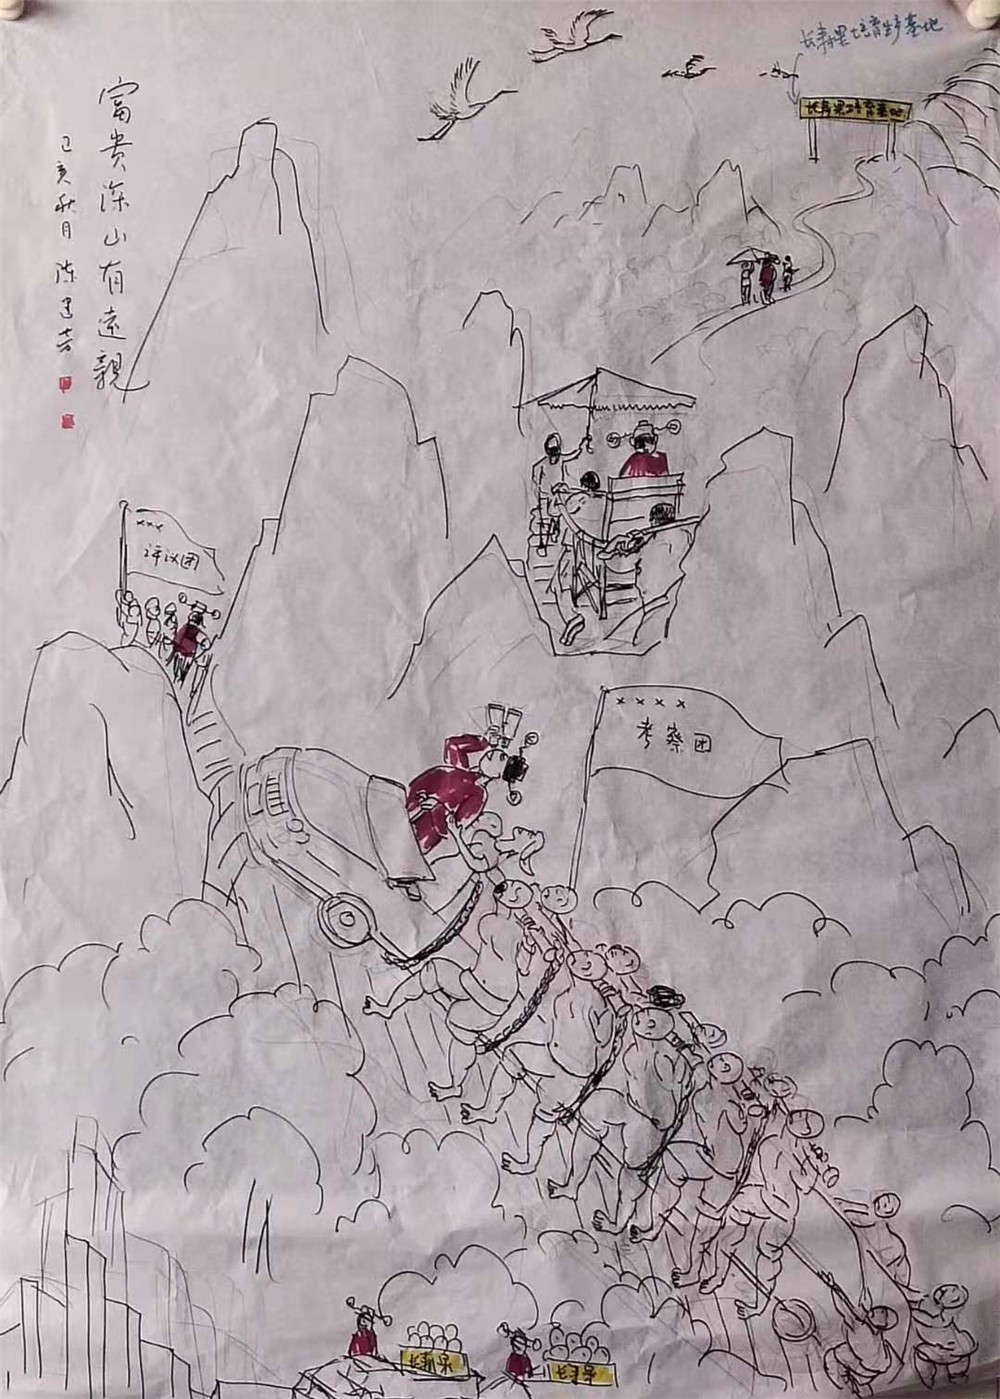 富贵深山有远亲
己亥秋月 陈建芳
长寿果培育生产基地
长寿果培育基地
×××
评议团
××××
考察团
长寿果
长寿果